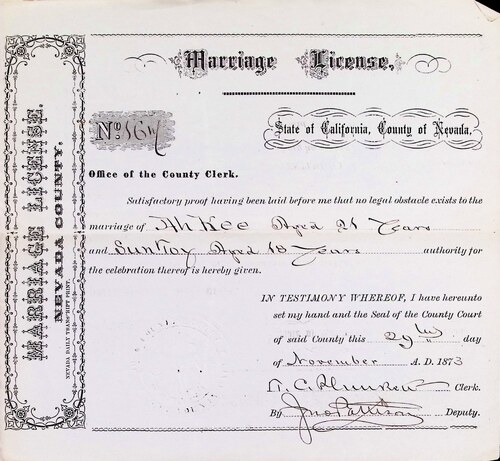 Marriage License.
MARRIAGE LICENSE.
NEVADA COUNTY.
NEVADA DAILY TRANSCRIPT PRINT.
No.
State of California, County of Nevada.
Office of the County Clerk.
Satisfactory proof having been laid before me that no legal obstacle exists to the
marriage of Ah Kee Aged 21 Years
and Sun Toy Aged 18 Years authority for
the celebration thereof is hereby given.
IN TESTIMONY WHEREOF, I have hereunto
set my hand and the Seal of the County Court
of said County this 29th day
of November A. D. 1873
T. C. Plunkett Clerk.
By Jno Pattison Deputy.